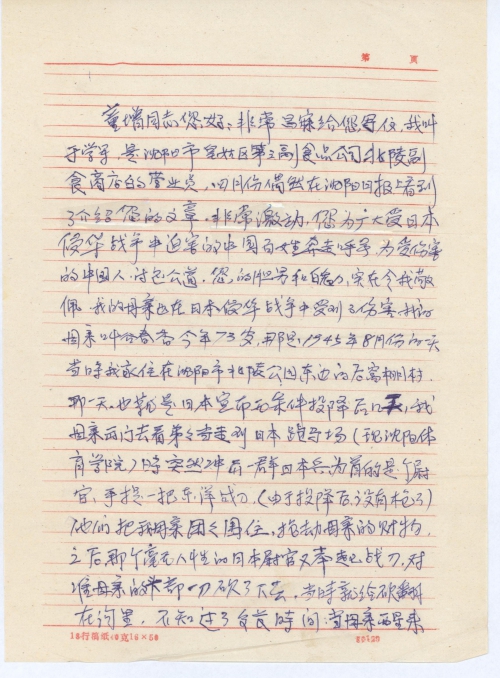 第 页
童增同志您好：非常冒昧给您写信，我叫
于学 是沈阳市皇姑区第三副食品公司北陵副
食商店的营业员，四月份偶然在沈阳日报上看到
了介绍您的文章，非常激动，您为广大受日本
侵华战争中迫害的中国百姓奔走呼号，为受伤害
的中国人，讨还公道，您的胆略和 力，实在令我敬
佩，我的母亲也在日本侵华战争中受到了伤害，我的
母亲叫 春香今年73岁，那是1945年8月份的一天
当时我家住在沈阳市北陵公园东边的后窝棚村，
那一天也就是日本宣布无条件投降后 天，我
母亲出门去看弟弟 走到日本跑马场（现沈阳体
育学院）时突然冲出一群日本兵为首的是个尉
官，手提一把东洋战刀，（由于投降后没有枪了）
他们把我母亲团团围住，抢劫母亲的财物，
之后那个毫无人性的日本尉官又举起战刀，对
准母亲的头部一刀砍了下去，当时就给砍倒
在沟里，不知过了多长时间，当母亲醒来
18行稿纸40克16×50